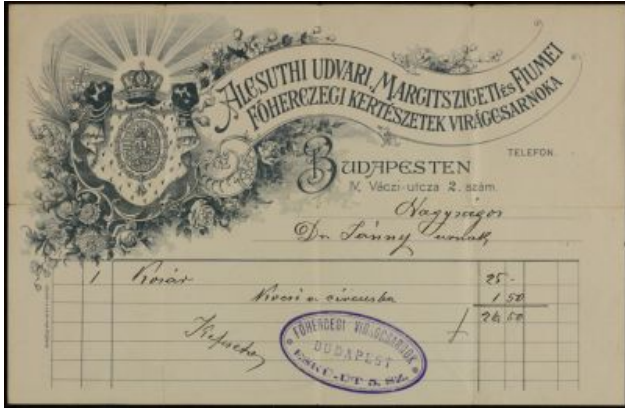 ALCSUTHI UDVARI, MARGITSZIGETI és FIUMEI
FŐHERCZEGI KERTÉSZETEK VIRÁGCSARNOKA
BUDAPESTEN
TELEFON.
IV, Váczi-utcza 2. szám.
Nagyságos
Dr. urnak
1 Kosár 25 -
Kocsi a circusba 1 50
26 50
FŐHERCEGI VIRÁGCSARNOK
BUDAPEST
ESKÜ-ÚT 5. SZ.